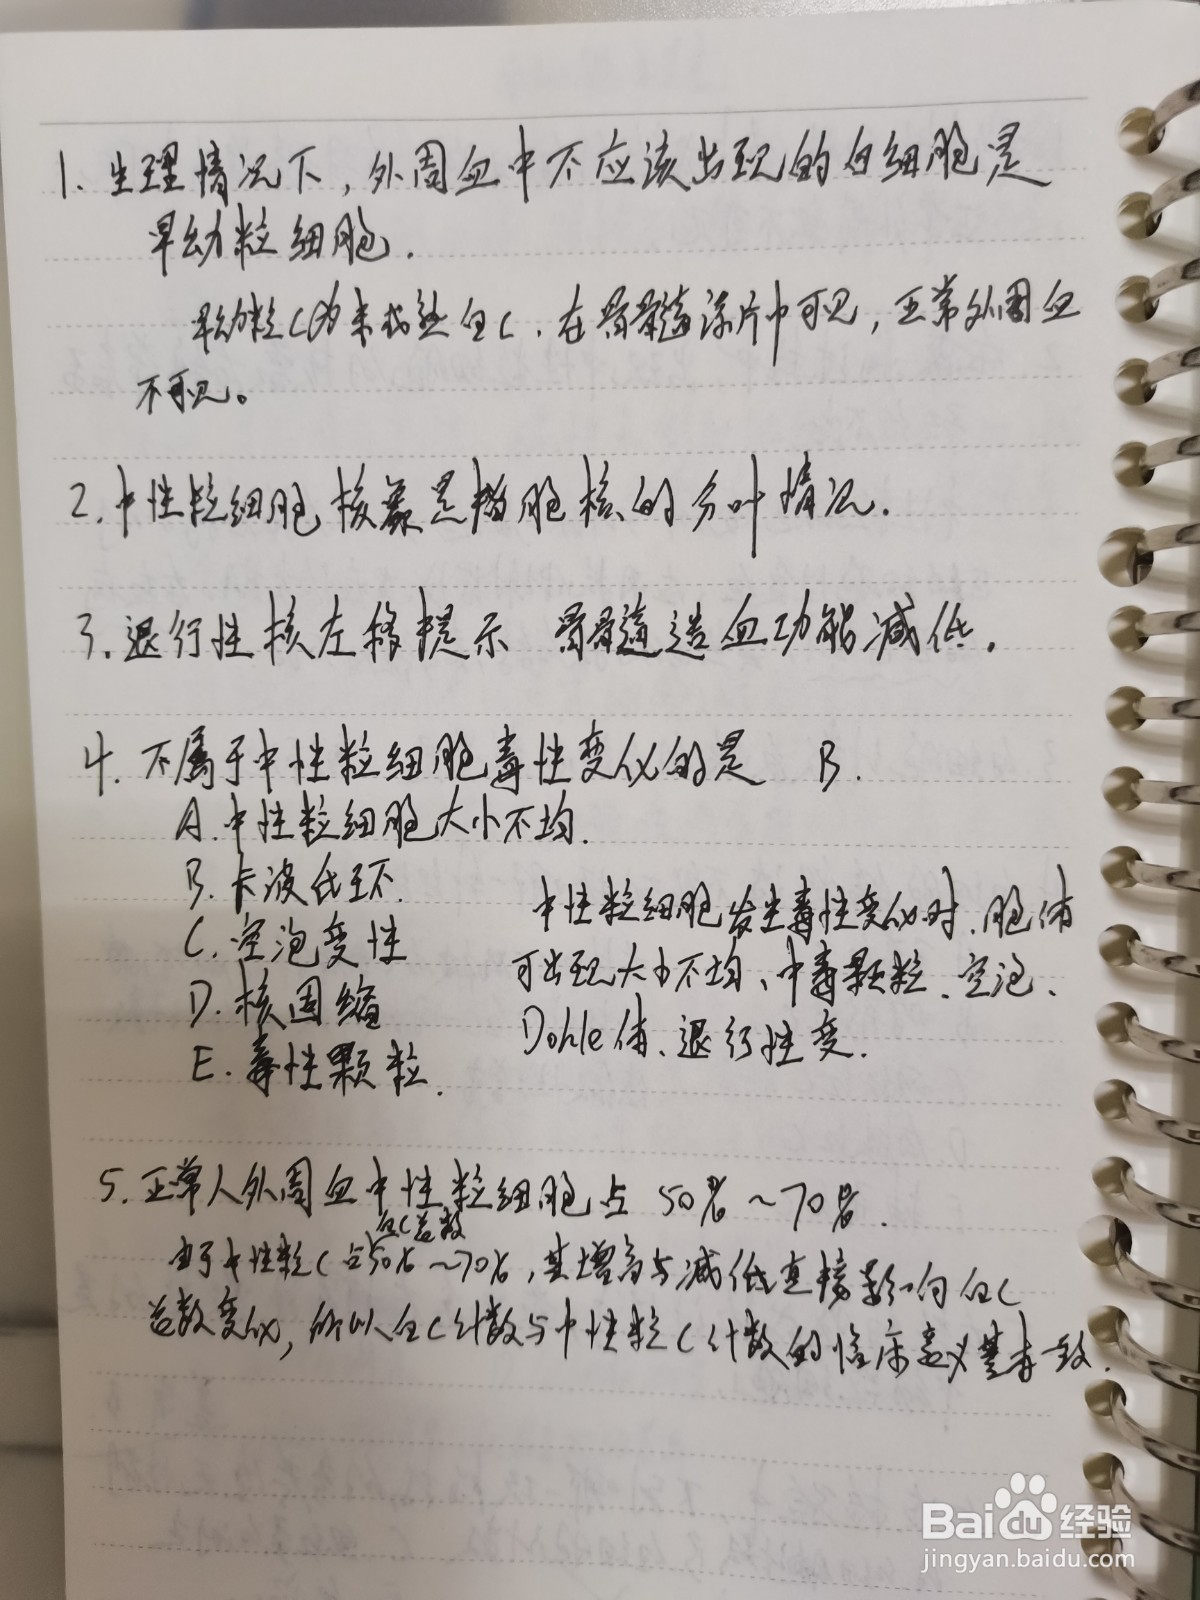 1. 生理情况下，外周血中不应该出现的白细胞是
早幼粒细胞.
早幼粒C为未成熟白C.在骨髓涂片中可见，正常外周血
不可见。
2.中性粒细胞核象是指胞核的分叶情况.
3.退行性核左移提示 骨髓造血功能减低.
4.不属于中性粒细胞毒性变化的是 B.
A.中性粒细胞大小不均.
B.卡波氏环.
C.空泡变性
D.核固缩
E.毒性颗粒.
中性粒细胞发生毒性变化时.胞体
可出现大小不均、中毒颗粒、空泡、
Dohle体、退行性变.
5.正常人外周血中性粒细胞占 50%~70%.
白C总数
由于中性粒C占50%~70%,其增高与减低直接影响白C
总数变化,所以白C计数与中性粒C计数的临床意义基本一致.
Baidu经验
jingyan.baidu.com